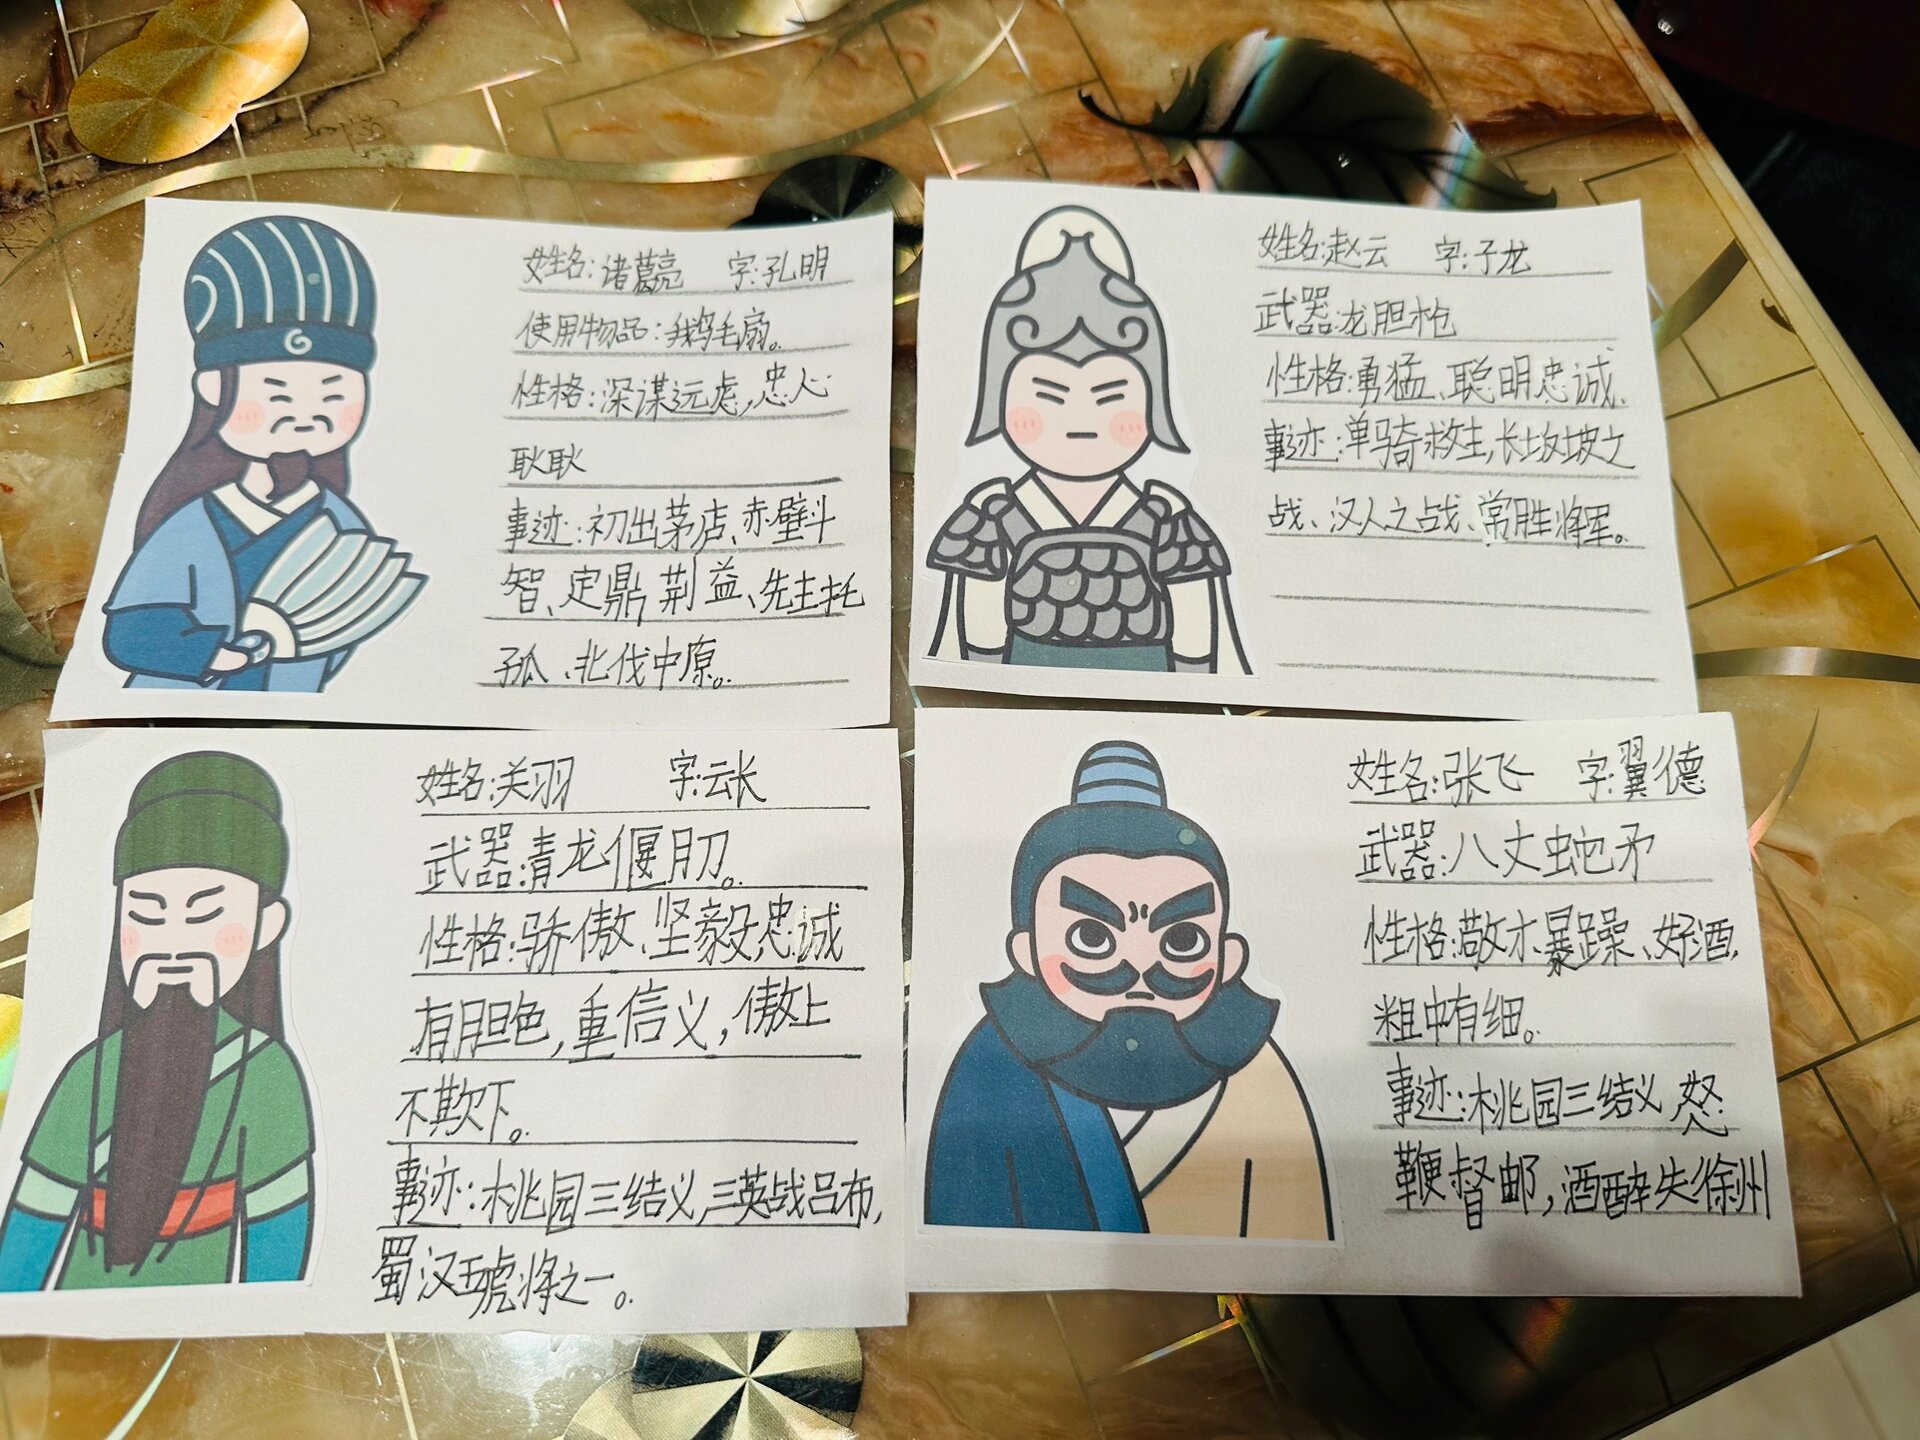 姓名:诸葛亮 字:孔明
使用物品:鹅毛扇。
性格:深谋远虑,忠心
耿耿
事迹:初出茅店、赤壁斗
智、定鼎荆益、先主托
孤、北伐中原。
姓名:赵云 字:子龙
武器:龙胆枪
性格:勇猛、聪明忠诚、
事迹:单骑救主,长坂坡之
战、汉人之战、常胜将军。
姓名:关羽 字:云长
武器:青龙偃月刀。
性格:骄傲、坚毅忠诚
有胆色,重信义,傲上
不欺下。
事迹:桃园三结义,三英战吕布,
蜀汉五虎将之一。
姓名:张飞 字:翼德
武器:八丈蛇矛
性格:暴躁、好酒,
粗中有细。
事迹:桃园三结义 怒
鞭督邮,酒醉失徐州